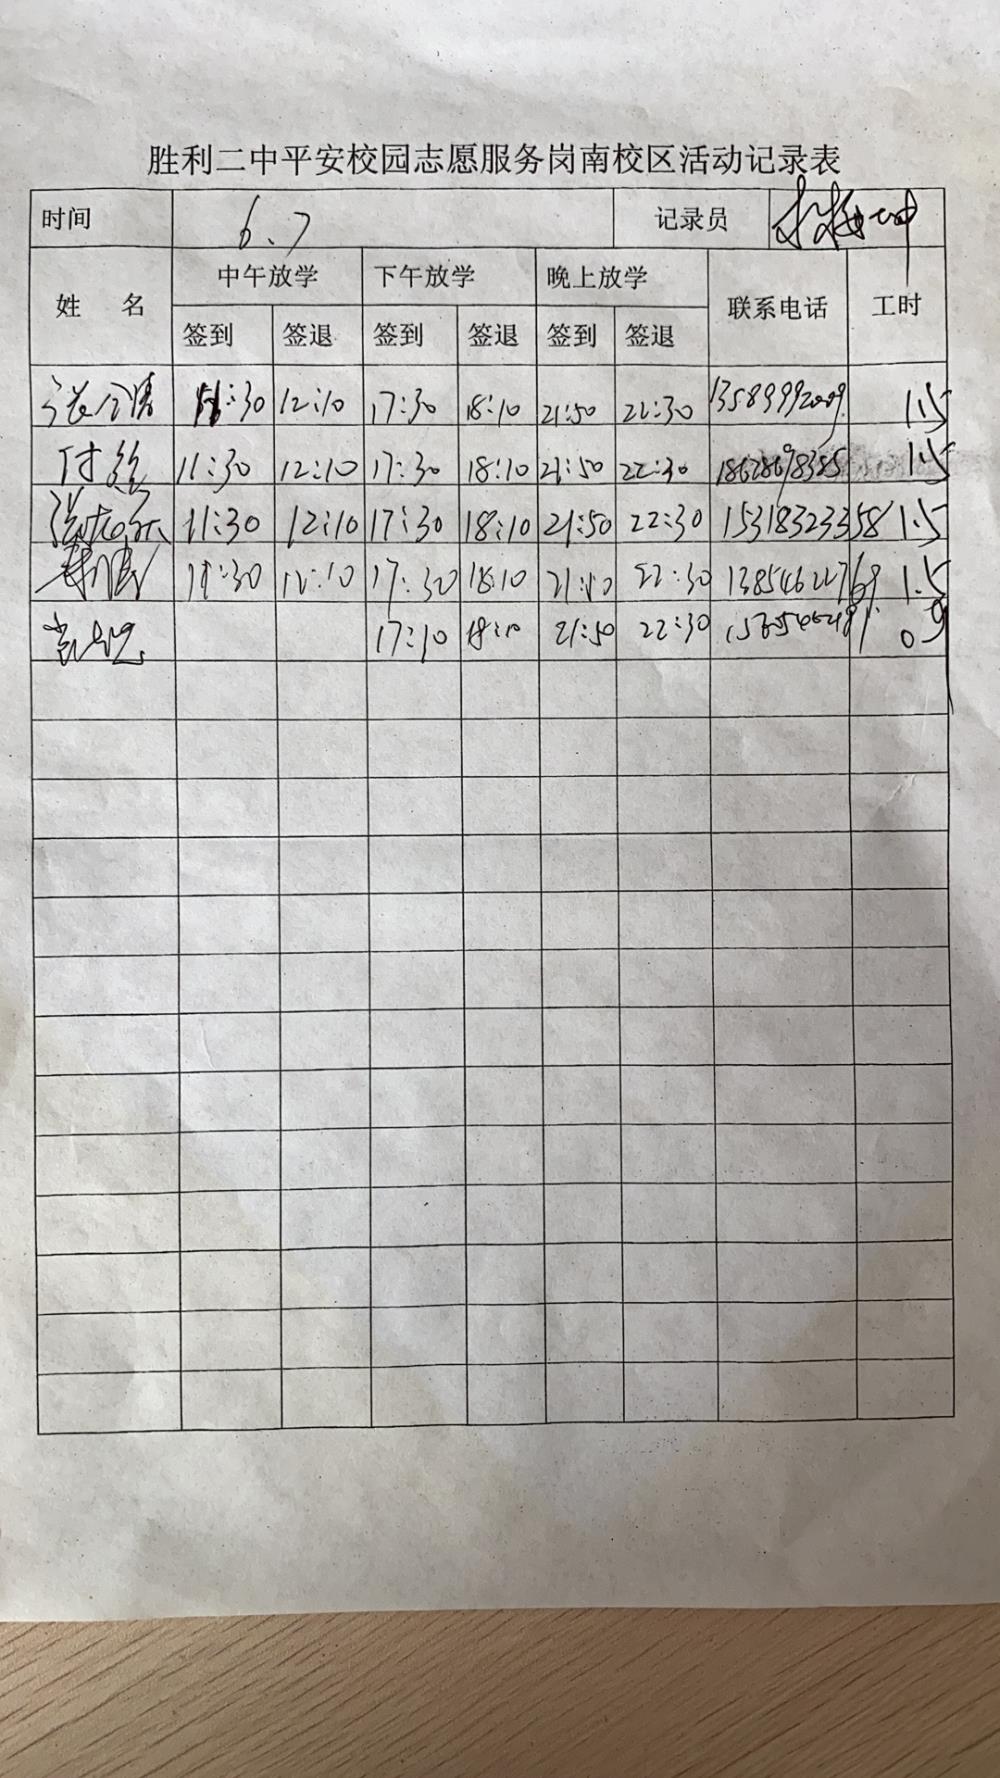 胜利二中平安校园志愿服务岗南校区活动记录表
时间 6.7 记录员
姓 名 中午放学 下午放学 晚上放学 联系电话 工时
签到 签退 签到 签退 签到 签退
11:30 12:10 17:30 18:10 21:50 22:30 13589992009 1.5
付 11:30 12:10 17:30 18:10 21:50 22:30 18628698385 1.5
张 11:30 12:10 17:30 18:10 21:50 22:30 15318323358 1.5
11:30 12:10 17:30 18:10 22:30 13854622769 1.5
17:10 18:10 21:50 22:30 0.9